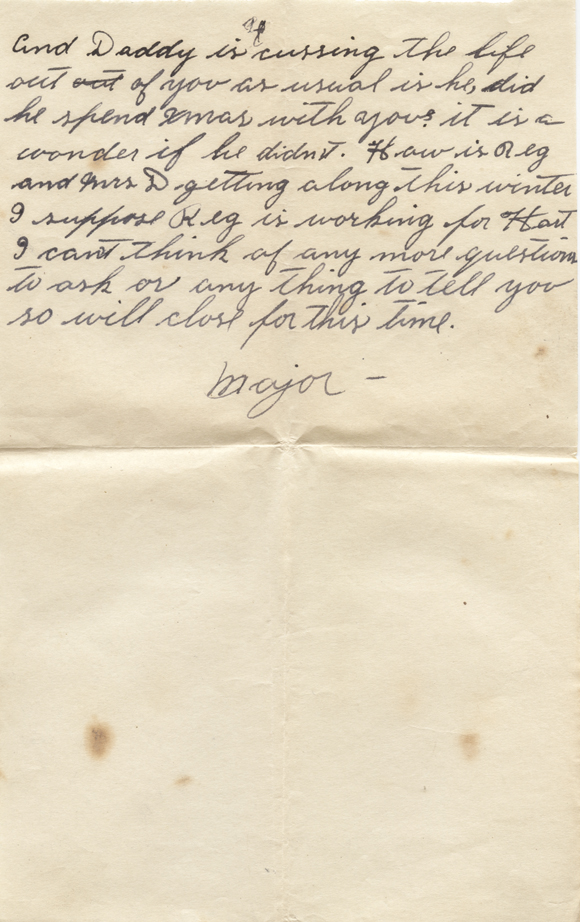 4
and Daddy is cussing the life
out out of you as usual is he, did
he spend Xmas with you? it is a
wonder if he didn't. How is Reg
and Mrs D getting along this winter
I suppose Reg is working for Hart
I can't think of any more questions
to ask or any thing to tell you
so will close for this time.
Major -